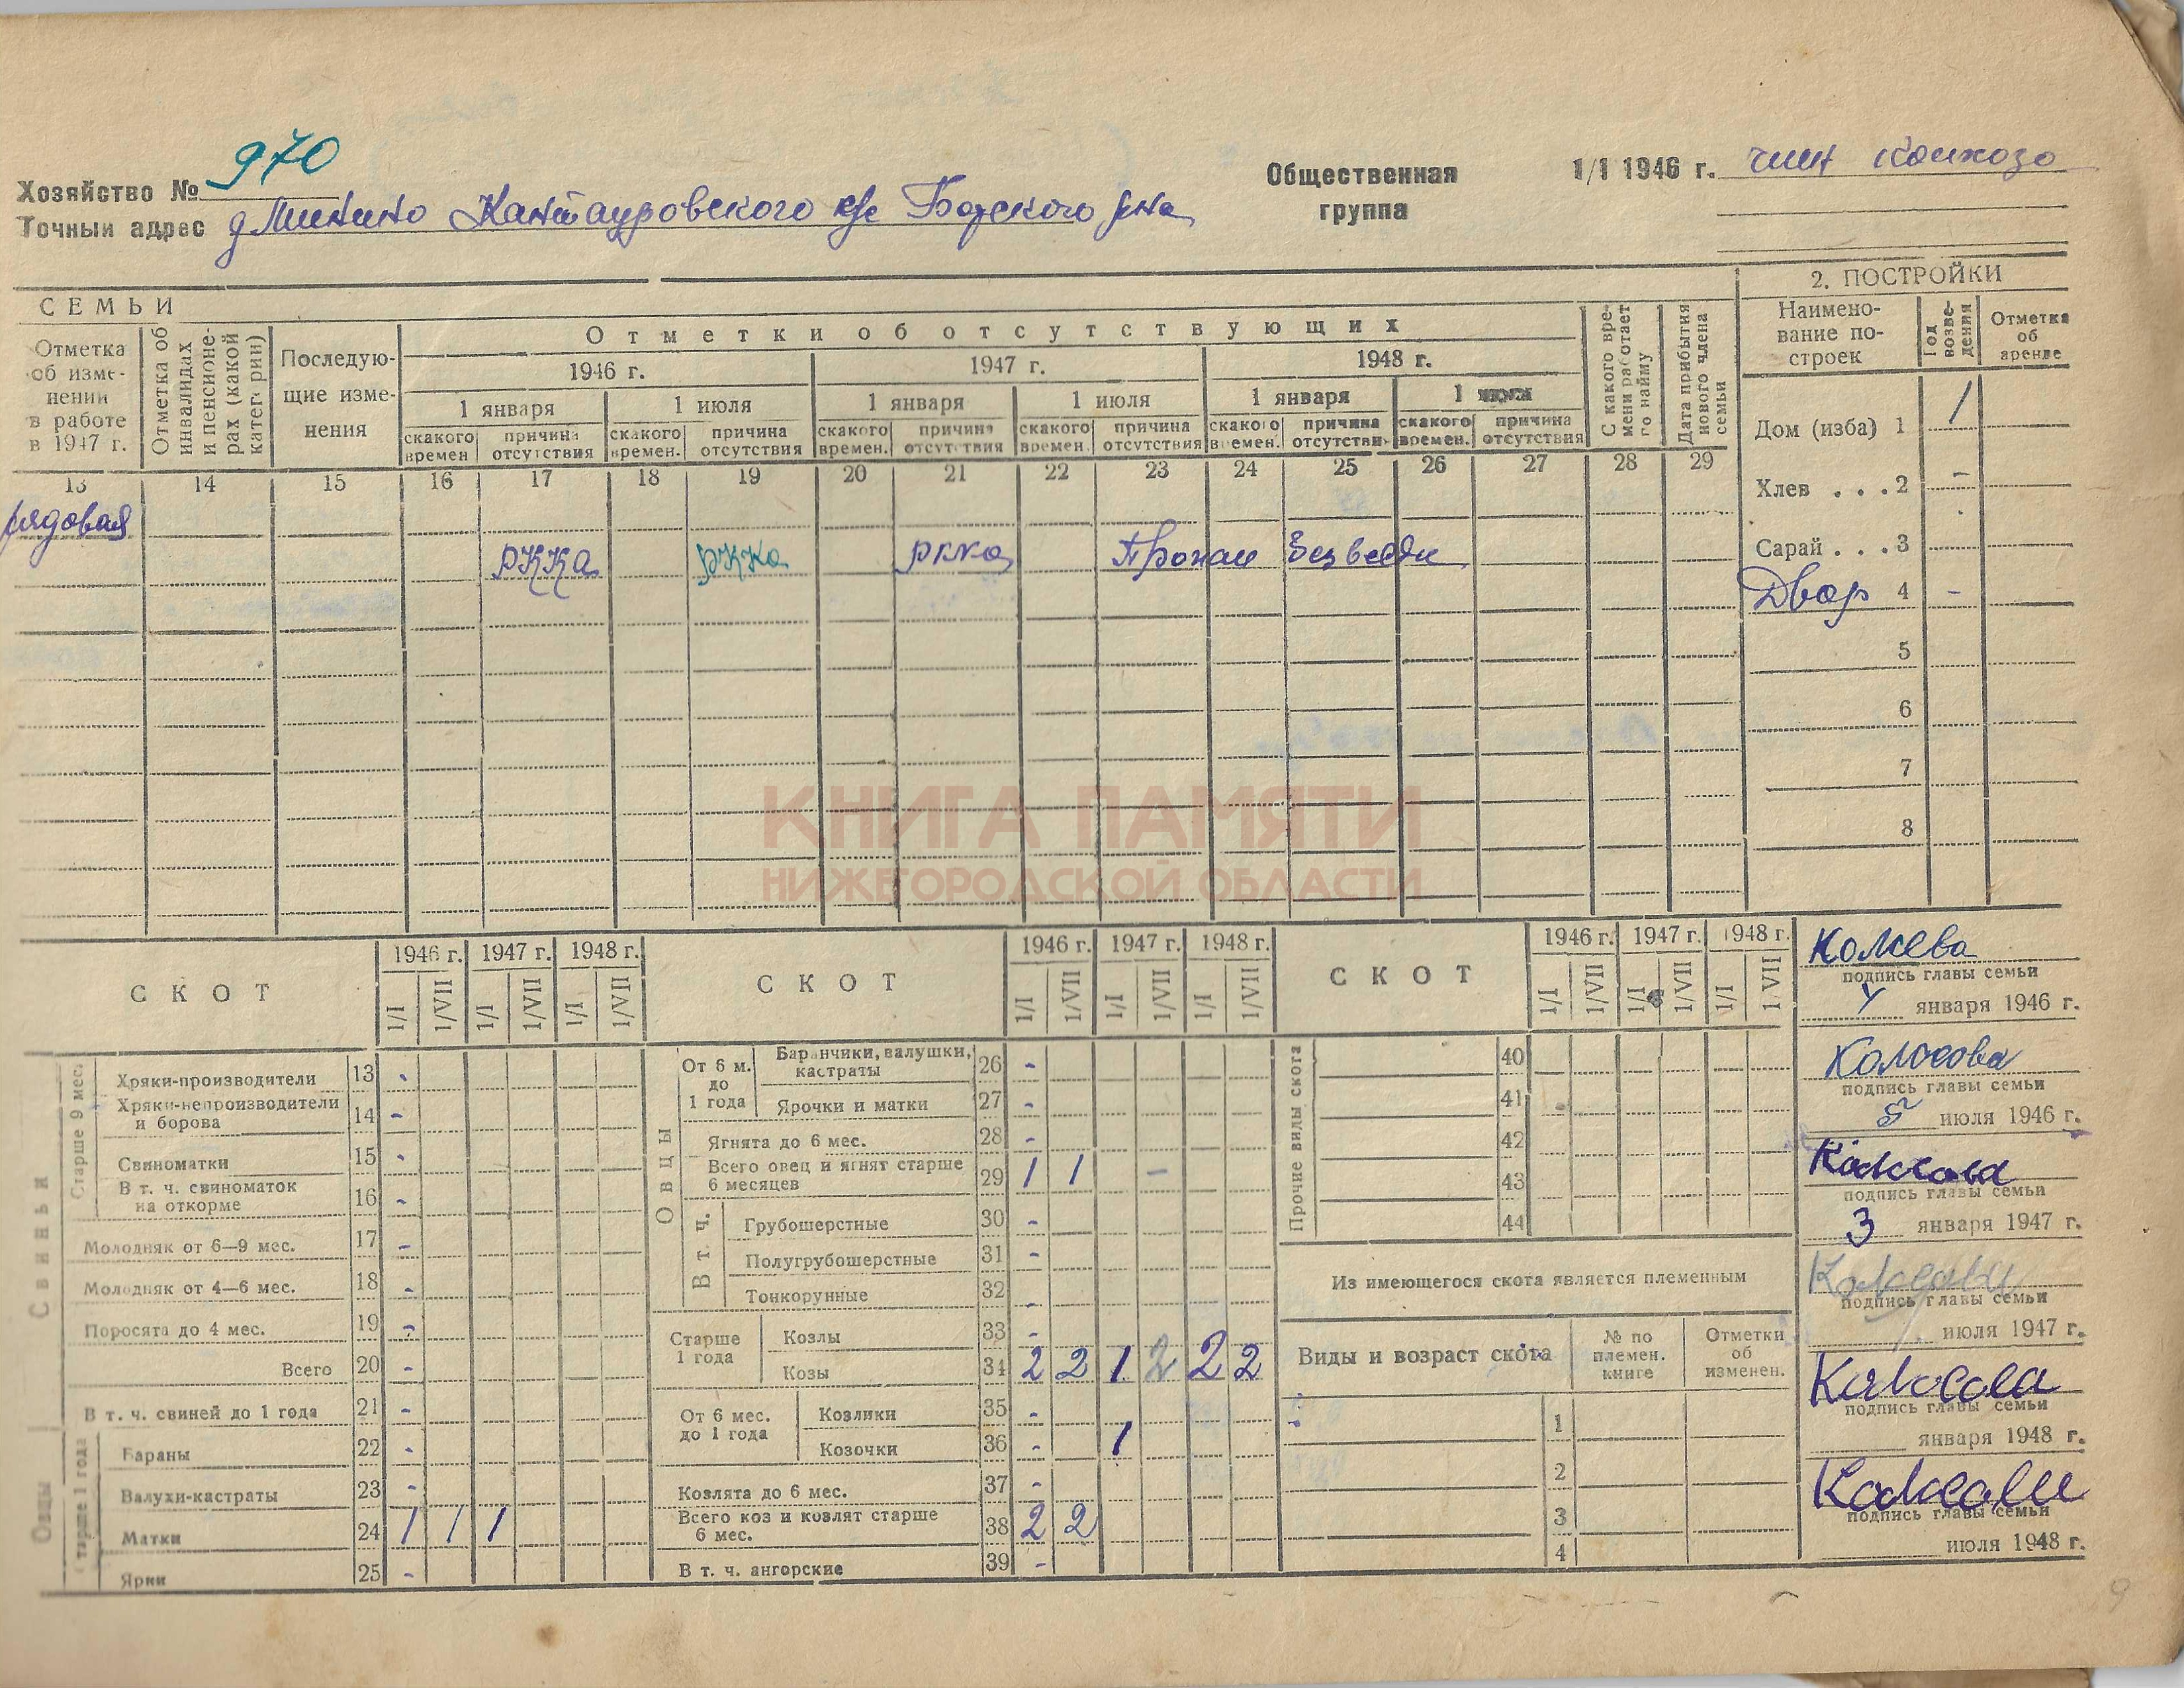 Хозяйство № 970
Точный адрес д Минино Кантауровского с/с Борского р-на
Общественная группа
1/I 1946 г. член колхоза
СЕМЬИ
Отметка об изменении в работе в 1947 г.
Отметка об инвалидах и пенсионерах (какой категории)
Последующие изменения
Отметки об отсутствующих
1946 г. 1947 г. 1948 г.
1 января 1 июля 1 января 1 июля 1 января 1 июля
скакого времен причина отсутствия скакого времен. причина отсутствия скакого времен. причина отсутствия скакого времен. причина отсутствия скакого времен. причина отсутствия скакого времен. причина отсутствия
С какого времени работает по найму
Дата прибытия нового члена семьи
13 14 15 16 17 18 19 20 21 22 23 24 25 26 27 28 29
рядовая
РККА РККА РККА Пропал без вести
2. ПОСТРОЙКИ
Наименование построек
Год возведения
Отметка об аренде
Дом (изба) 1 /
Хлев . . . 2 -
Сарай . . . 3
Двор 4 -
5
6
7
8
КНИГА ПАМЯТИ
НИЖЕГОРОДСКОЙ ОБЛАСТИ
СКОТ 1946 г. 1947 г. 1948 г.
1/I 1/VII 1/I 1/VII 1/I 1/VII
Свиньи
Старше 9 мес.
Хряки-производители 13 -
Хряки-непроизводители и борова 14 -
Свиноматки 15 -
В т. ч. свиноматок на откорме 16 -
Молодняк от 6—9 мес. 17 -
Молодняк от 4—6 мес. 18 -
Поросята до 4 мес. 19 -
Всего 20 -
В т. ч. свиней до 1 года 21 -
Овцы
старше 1 года
Бараны 22 -
Валухи-кастраты 23 -
Матки 24 1 1 1
Ярки 25 -
СКОТ 1946 г. 1947 г. 1948 г.
1/I 1/VII 1/I 1/VII 1/I 1/VII
Овцы
От 6 м. до 1 года
Баранчики, валушки, кастраты 26 -
Ярочки и матки 27 -
Ягнята до 6 мес. 28 -
Всего овец и ягнят старше 6 месяцев 29 1 1 -
В т. ч.
Грубошерстные 30 -
Полугрубошерстные 31 -
Тонкорунные 32 -
Старше 1 года
Козлы 33 -
Козы 34 2 2 1 2 2 2
От 6 мес. до 1 года
Козлики 35 -
Козочки 36 - 1
Козлята до 6 мес. 37 -
Всего коз и козлят старше 6 мес. 38 2 2
В т. ч. ангорские 39 -
СКОТ 1946 г. 1947 г. 1948 г.
1/I 1/VII 1/I 1/VII 1/I 1 VII
Прочие виды скота
40
41
42
43
44
Из имеющегося скота является племенным
Виды и возраст скота
№ по племен. книге
Отметки об изменен.
1
2
3
4
подпись главы семьи
января 1946 г.
Колосова
подпись главы семьи
5 июля 1946 г.
подпись главы семьи
3 января 1947 г.
подпись главы семьи
июля 1947 г.
подпись главы семьи
января 1948 г.
подпись главы семьи
июля 1948 г.
9